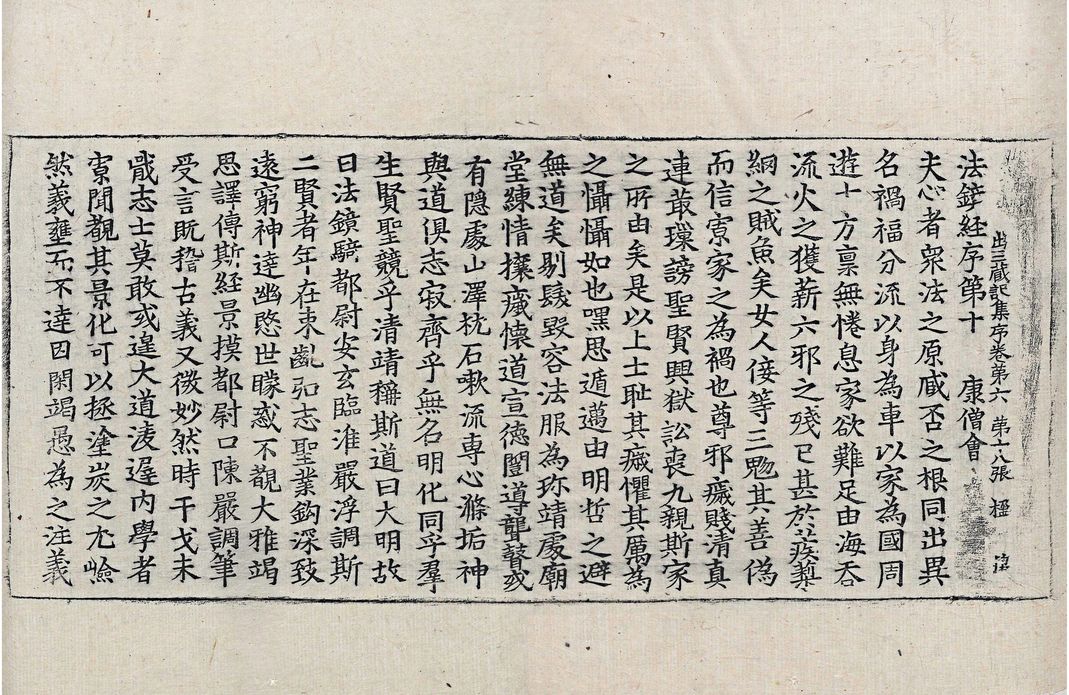 出三藏記集序卷第六 第十八張 極
法鏡経序第十 康僧會
夫心者衆法之原臧否之根同出異
名禍福分流以身為車以家為國周
遊十方稟無惓息家欲難足由海吞
流火之獲薪六邪之殘已甚於蒺䔧
網之賊魚矣女人佞等三魃其善偽
而信寡家之為禍也尊邪穢賤清真
連藂璅謗聖賢興獄訟喪九親斯家
之所由矣是以上士恥其穢懼其厲為
之懾懾如也嘿思遁邁由明哲之避
無道矣剔髮毀容法服為珎靖處廟
堂練情攘穢懷道宣德闓導聾瞽或
有隱處山澤枕石嗽流專心滌垢神
與道俱志寂齊乎無名明化同乎羣
生賢聖競乎清靖稱斯道曰大明故
曰法鏡騎都尉安玄臨淮嚴浮調斯
二賢者年在束齓弘志聖業鈎深致
遠窮神達幽愍世矇惑不覩大雅竭
思譯傳斯經景摸都尉口陳嚴調筆
受言既稽古義又微妙然時干戈未
戢志士莫敢或遑大道淩遲内學者
寡聞覩其景化可以拯塗炭之尤嶮
然義壅而不達因閑竭愚為之注義